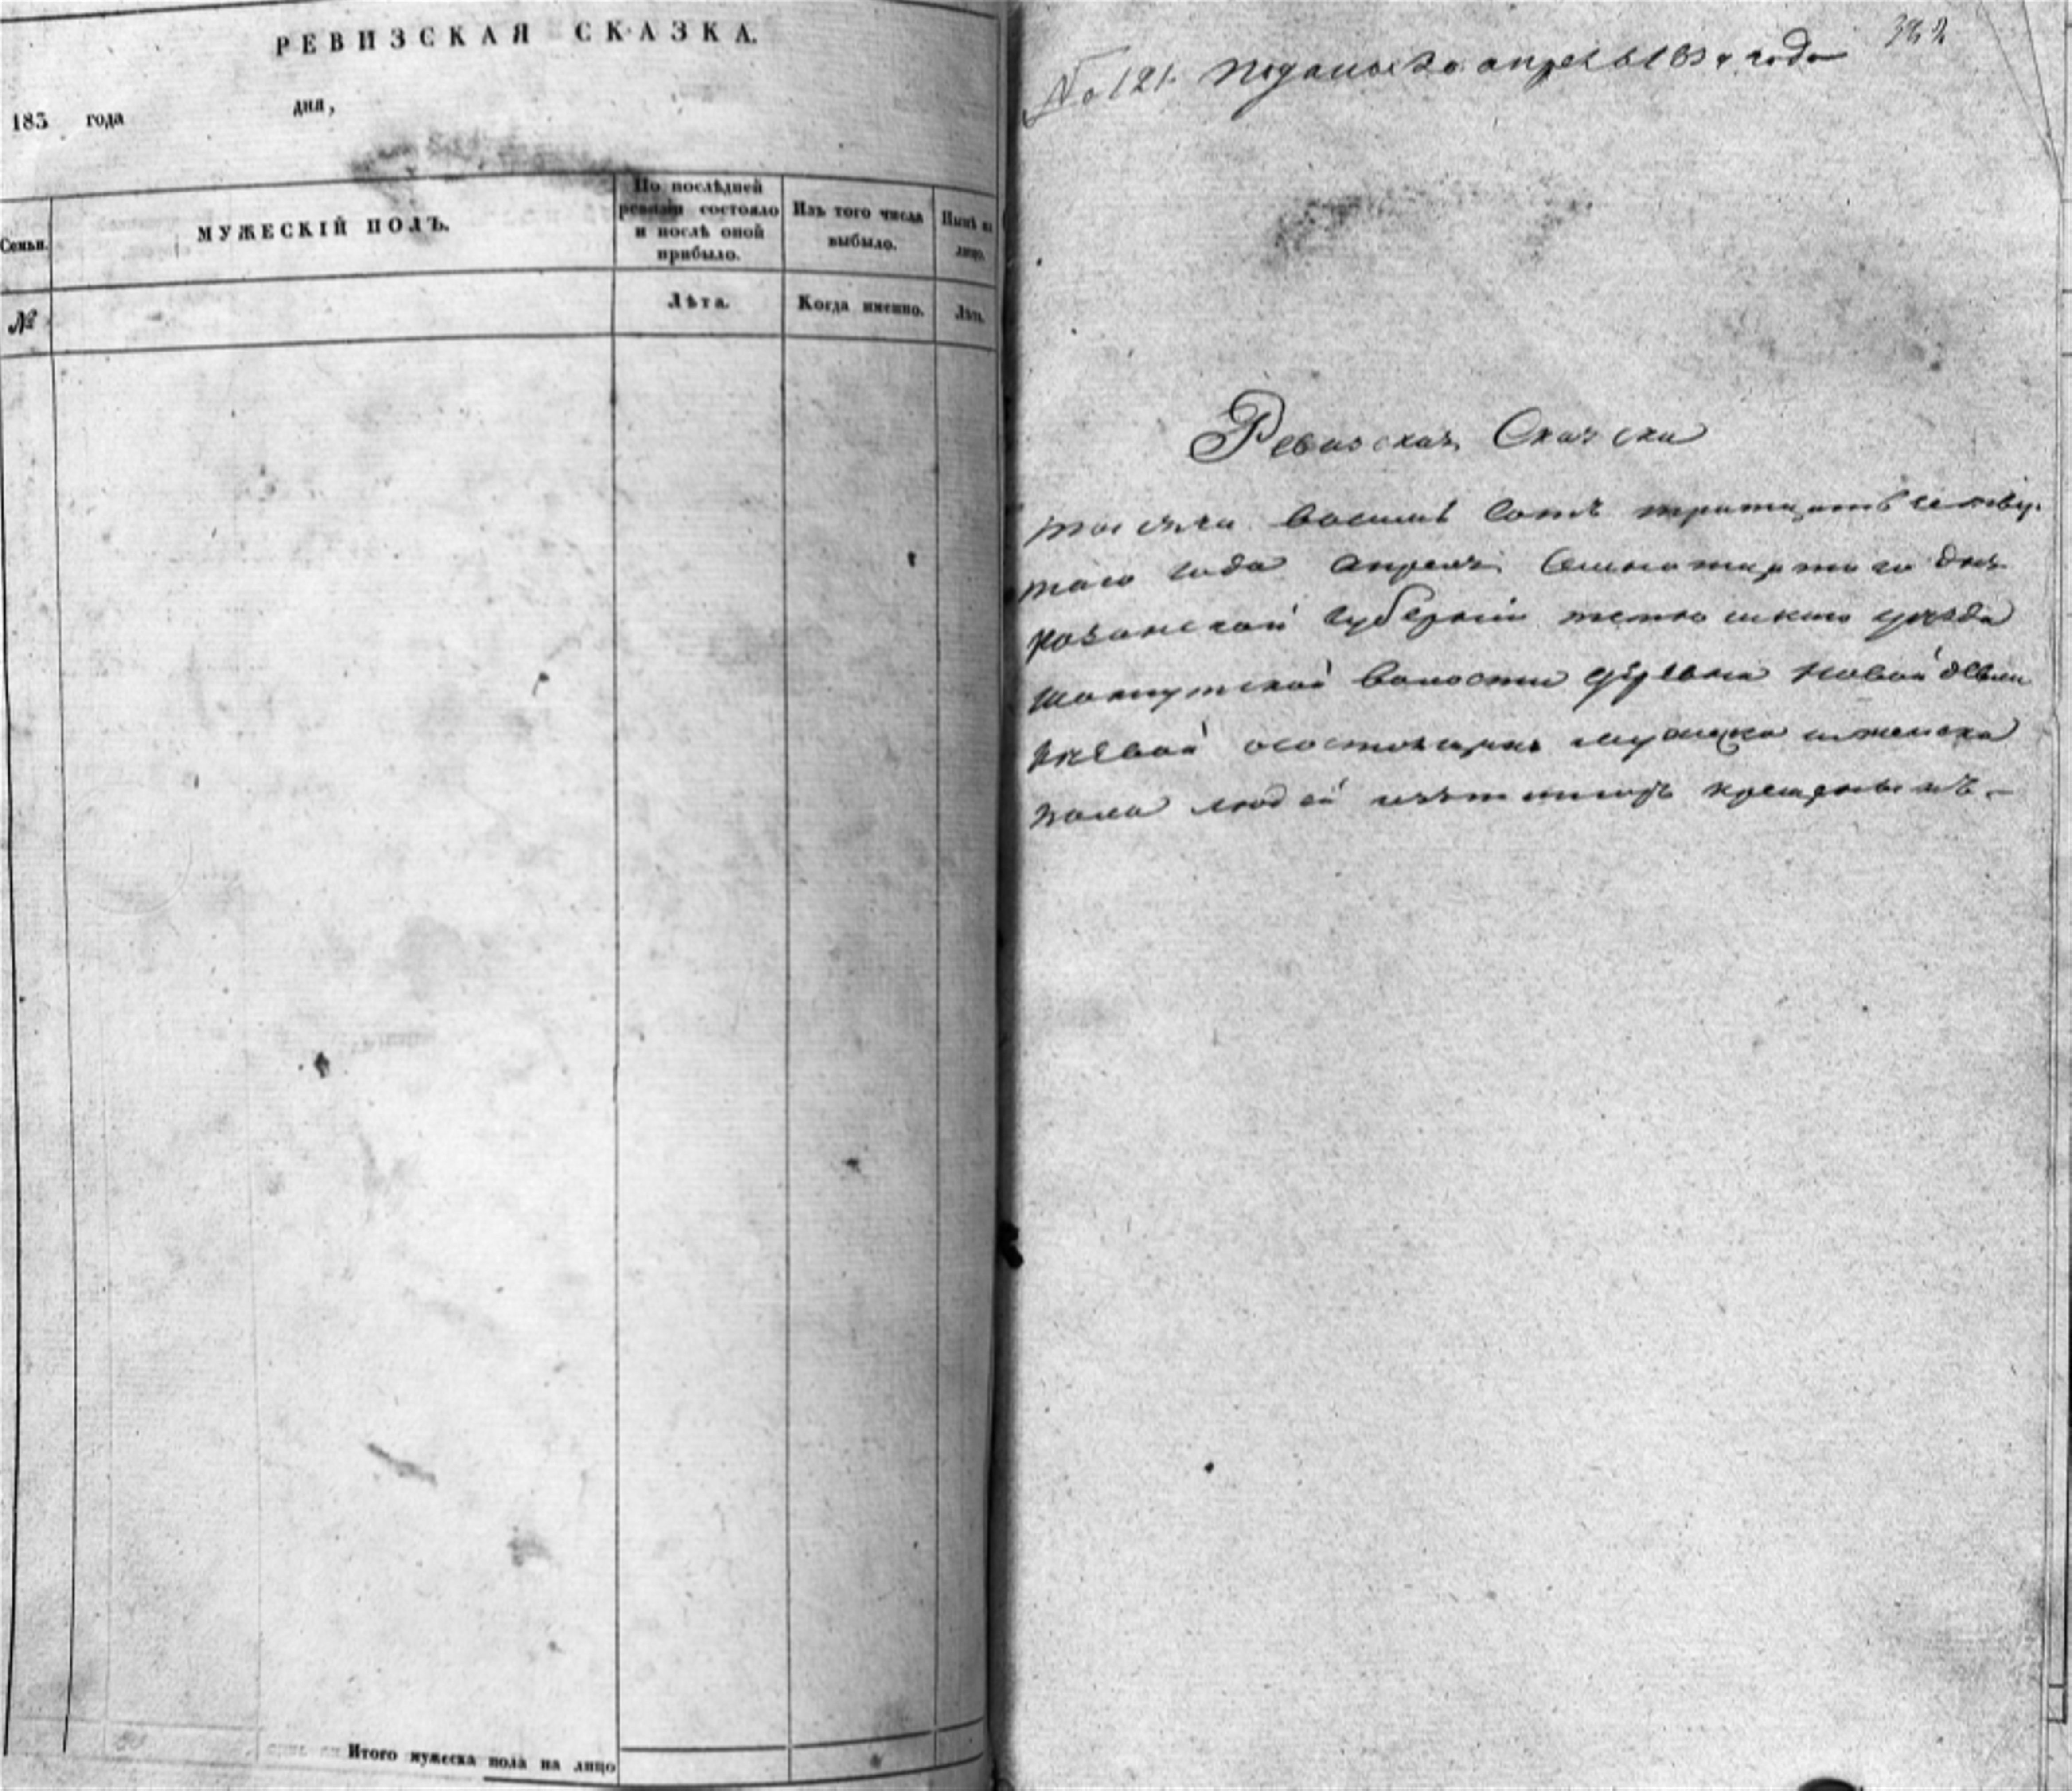 РЕВИЗСКАЯ СКАЗКА.
183 года дня,
Семьи.
МУЖЕСКІЙ ПОЛЪ.
По послѣдней ревизіи состояло и послѣ оной прибыло.
Изъ того числа выбыло.
Нынѣ на лицо.
№
Лѣта.
Когда именно.
Лѣта.
Итого мужеска пола на лицо
№ 121. Подана 20 апреля 1834 года
322
Ревизская Сказска
тысяча восемь сотъ тритцать четвер
таго года апреля дня
Казанской губерніи уезда
волости деревни Новой
состоящихъ мужеска и женска
пола людей изъ крещеныхъ